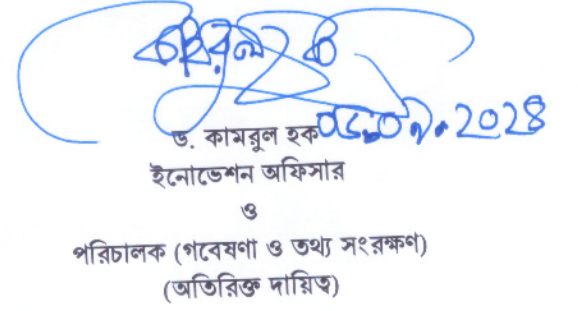 কামরুল হক
০৮.০৭.২০২৪
ড. কামরুল হক
ইনোভেশন অফিসার
ও
পরিচালক (গবেষণা ও তথ্য সংরক্ষণ)
(অতিরিক্ত দায়িত্ব)